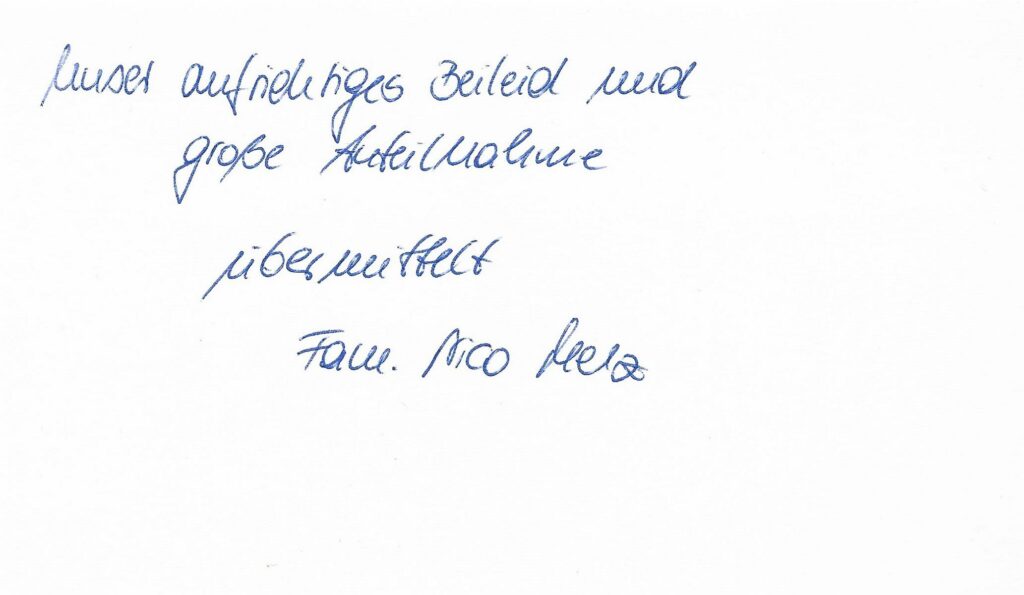 Unser aufrichtiges Beileid und
große Anteilnahme
übermittelt
Fam. Nico Merz